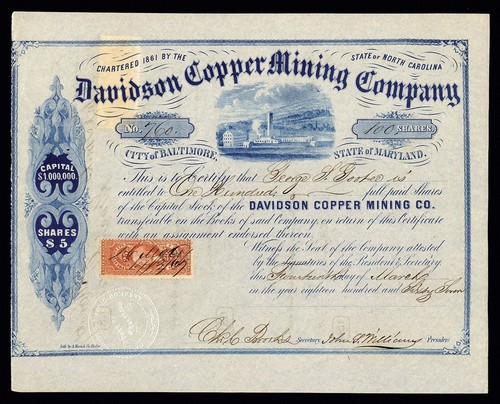 CHARTERED 1861 BY THE STATE OF NORTH CAROLINA
Davidson Copper Mining Company
No. 760. 100 SHARES
CITY of BALTIMORE, STATE of MARYLAND.
CAPITAL
$1,000,000.
SHARES
$5
This is to Certify that George is
entitled to One Hundred full paid Shares
of the Capital Stock of the DAVIDSON COPPER MINING CO.
transferable on the Books of said Company, on return of this Certificate
with an assignment endorsed thereon.
Witness the Seal of the Company attested
by the signatures of the President & Secretary
this day of March
in the year eighteen hundred and Sixty Four
Chs. C. Brooks Secretary John S. Williams President